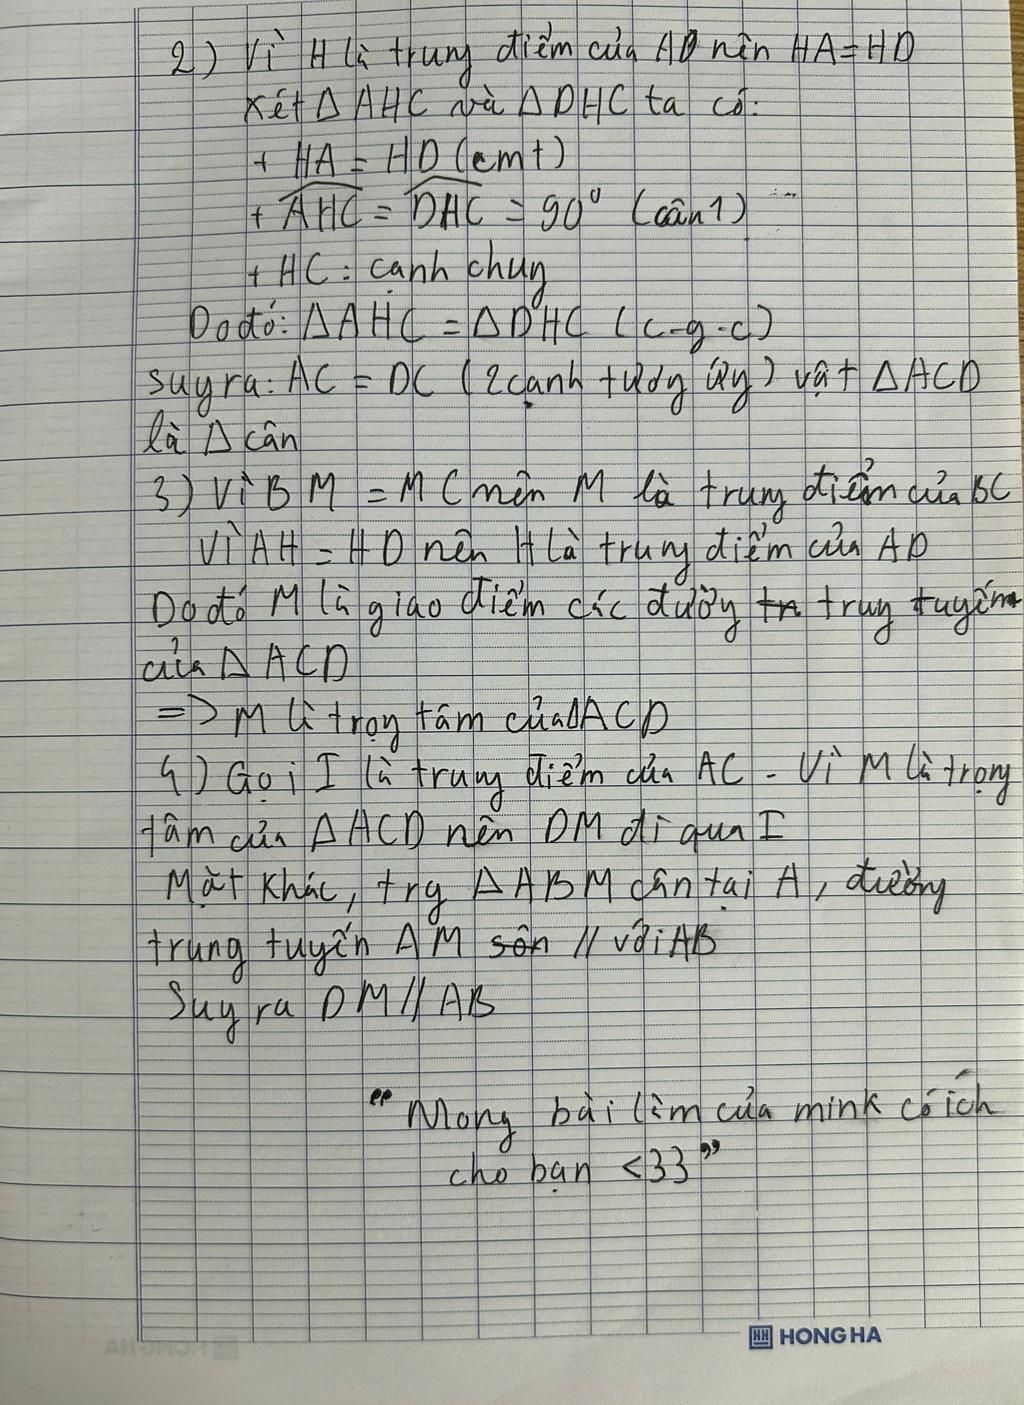 2) Vì H là trung điểm của AD nên HA = HD
Xét Δ AHC và Δ DHC ta có:
+ HA = HD (cmt)
+ AHC = DHC = 90⁰ (câu 1)
+ HC : cạnh chung
Do đó: Δ AHC = Δ DHC (c-g-c)
Suy ra: AC = DC (2 cạnh tương ứng) vật Δ ACD
là Δ cân
3) Vì BM = MC nên M là trung điểm của BC
Vì AH = HD nên H là trung điểm của AD
Do đó M là giao điểm các đường trung tuyến
của Δ ACD
=> M là trọng tâm của Δ ACD
4) Gọi I là trung điểm của AC - Vì M là trọng
tâm của Δ ACD nên DM đi qua I
Mặt khác, trg Δ ABM cân tại A, đường
trung tuyến AM // với AB
Suy ra DM // AB
"Mong bài làm của mink có ích
cho bạn <33"
HONG HA